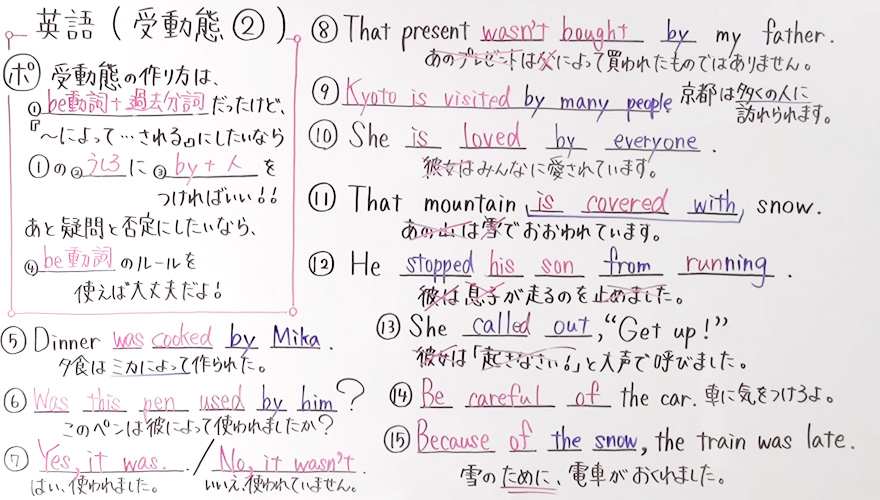 英語(受動態②)
ポ 受動態の作り方は、
①be動詞+過去分詞だったけど、
『〜によって…される』にしたいなら
①の②うしろに③by+人を
つければいい!!
あと疑問と否定にしたいなら、
④be動詞のルールを
使えば大丈夫だよ!
⑤Dinner was cooked by Mika.
夕食はミカによって作られた。
⑥Was this pen used by him?
このペンは彼によって使われましたか?
⑦Yes, it was. / No, it wasn't.
はい、使われました。 いいえ、使われていません。
⑧That present wasn't bought by my father.
あのプレゼントは父によって買われたものではありません。
⑨Kyoto is visited by many people 京都は多くの人に
訪れられます。
⑩She is loved by everyone.
彼女はみんなに愛されています。
⑪That mountain is covered with snow.
あの山は雪でおおわれています。
⑫He stopped his son from running.
彼は息子が走るのを止めました。
⑬She called out, "Get up!"
彼女は「起きなさい!」と大声で呼びました。
⑭Be careful of the car. 車に気をつけろよ。
⑮Because of the snow, the train was late.
雪のために、電車がおくれました。